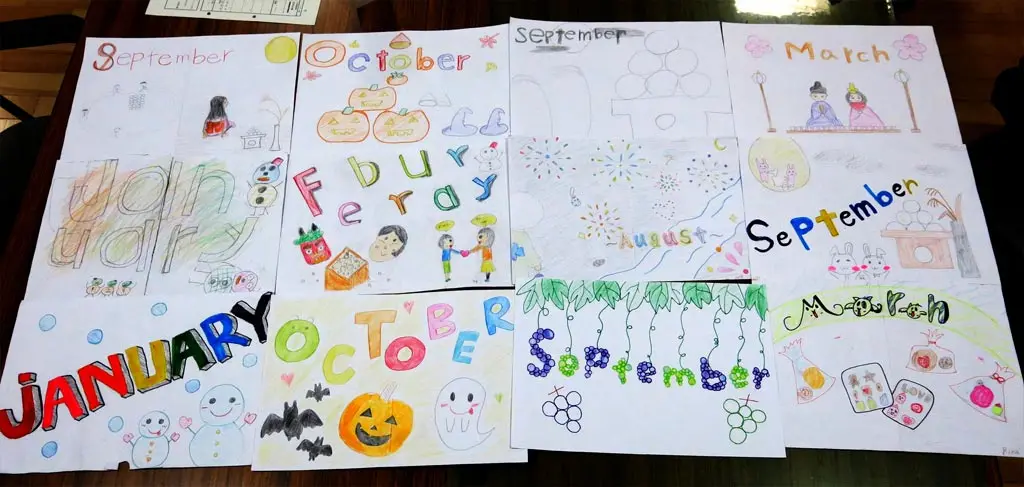 September
October
September
March
Jan
uary
Fe bur ry
er ay
August
September
JANUARY
OCTOBER
September
March
LOVE